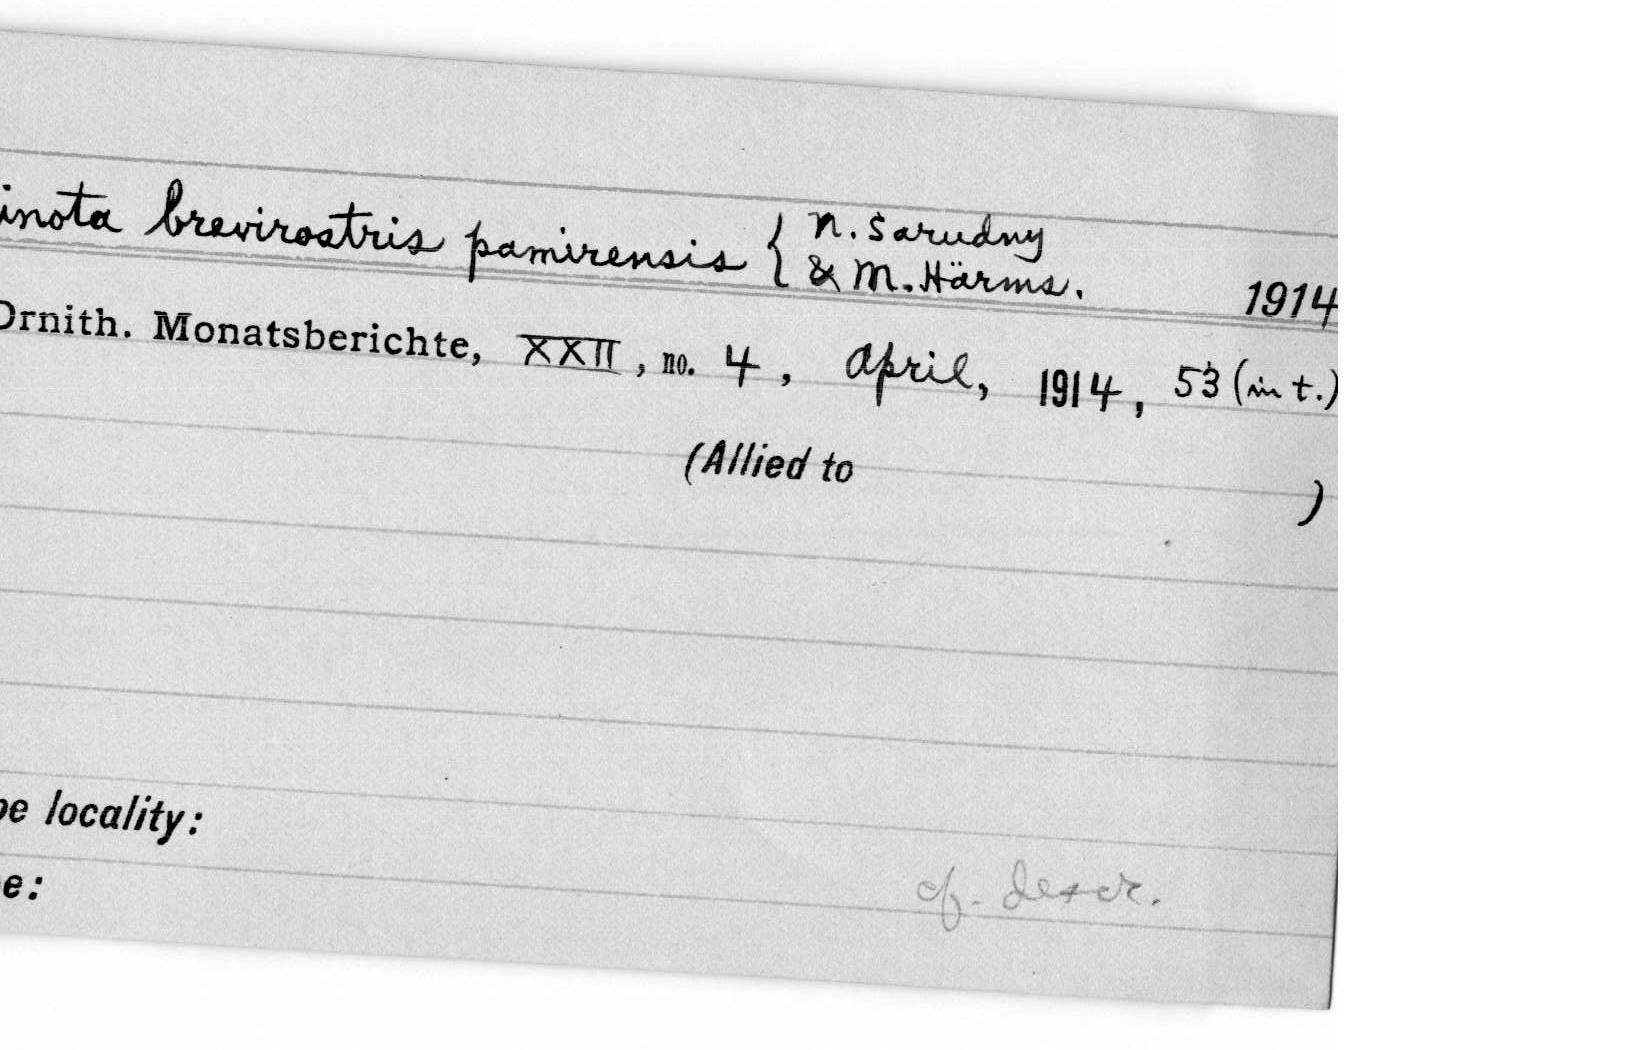 inota brevirostris pamirensis { N. Šarudny
& M. Härms. 1914
Ornith. Monatsberichte, XXII, no. 4, April, 1914, 53 (in t.)
(Allied to )
pe locality:
e:
cf. descr.